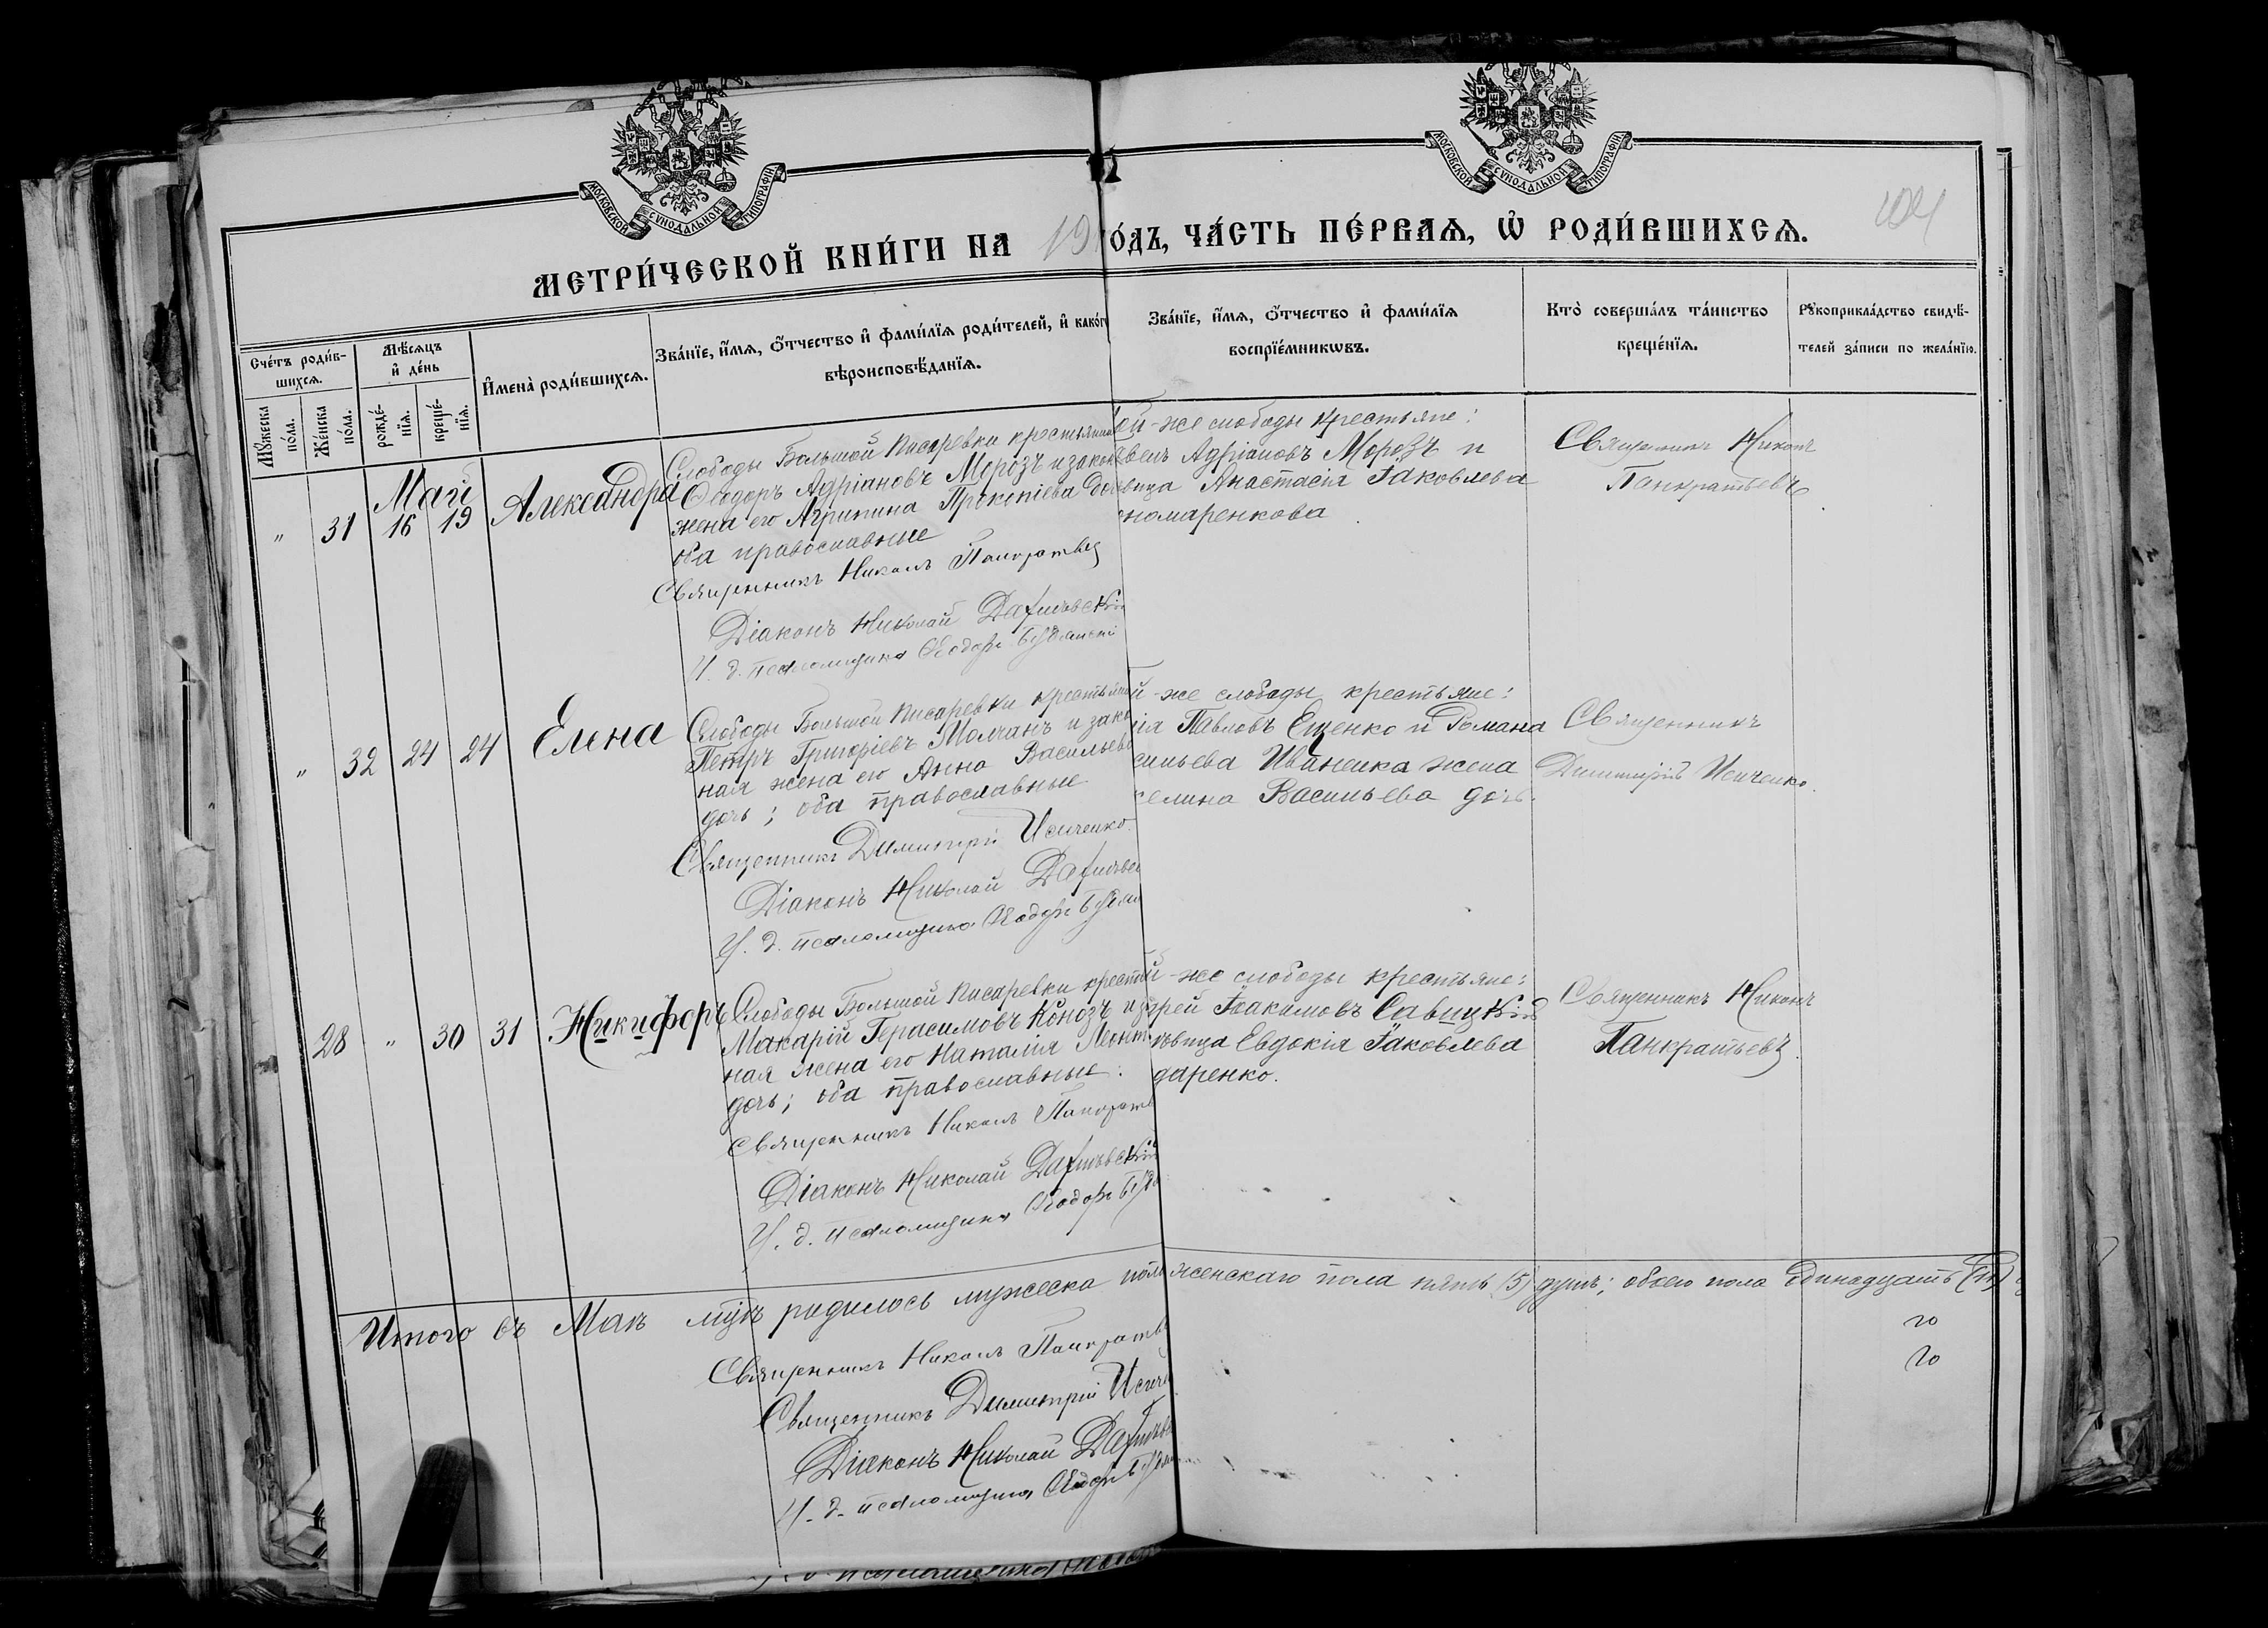 МОСКОВСКОЙ СѴНОДАЛЬНОЙ ТИПОГРАФІИ
МОСКОВСКОЙ СѴНОДАЛЬНОЙ ТИПОГРАФІИ
МЕТРИ́ЧЕСКОЙ КНИ́ГИ НА 19 ГО́ДЪ, ЧА́СТЬ ПЕ́РВАЯ, Ѡ РОДИ́ВШИХСЯ.
Сче́тъ роди́в-
шихся.
Мꙋ́жеска по́ла.
Же́нска по́ла.
Мѣ́сяцъ и де́нь
рожде́-нїя.
креще́-нїя.
И҆мена̀ роди́вшихся.
Зва́нїе, и҆́мя, ѻ҆́тчество и҆ фами́лїя роди́телей, и҆ како́гѡ
вѣроисповѣ́данїя.
Зва́нїе, и҆́мя, ѻ҆́тчество и҆ фами́лїя
воспрїе́мникѡвъ.
Кто̀ соверша́лъ та́инство
креще́нїя.
Рꙋкоприкла́дство свидѣ́-
телей за́писи по жела́нїю.
Май
" 31 16 19 Александра
Слободы Большой Писаревки крестьянин
Ѳеодоръ Адріановъ Морозъ и закон
жена его Агрипина Прокопіева доч
оба православные
Священникъ Никонъ Панкратьев
Діаконъ Николай
И. д. псаломщика Ѳеодоръ
ей-же слободы крестьяне:
велъ Адріановъ Морозъ и
вица Анастасія Іаковлева
номаренкова
Священникъ Никонъ
Панкратьевъ
" 32 24 24 Елена
Слободы Большой Писаревки крестьян
Петръ Григоріевъ Молчанъ и зако
ная жена его Анна Васильева
дочь; оба православные
Священникъ Димитрій Исиченко.
Діаконъ Николай
И. д. псаломщика Ѳеодоръ
й-же слободы крестьяне:
ія Павловъ Ещенко и Романа
сильева Иваненка жена
келина Васильева дочь.
Священникъ
Димитрій Исиченко.
28 " 30 31 Никифоръ
Слободы Большой Писаревки крестья
Макарій Герасимовъ Конозъ и з
ная жена его Наталія Леонт
дочь; оба православные.
Священникъ Никонъ Панкратьев
Діаконъ Николай
И. д. псаломщика Ѳеодоръ
й-же слободы крестьяне:
дрей Іоакимовъ Савицкій
вица Евдокія Іаковлева
даренко.
Священникъ Никонъ
Панкратьевъ.
Итого въ Маѣ мцѣ родилось мужеска пола женскаго пола пять (5) душъ; обоего пола одинадцать (11)
Священникъ Никонъ Панкратьев
Священникъ Димитрій Исиче
Діаконъ Николай
И. д. псаломщика Ѳеодоръ